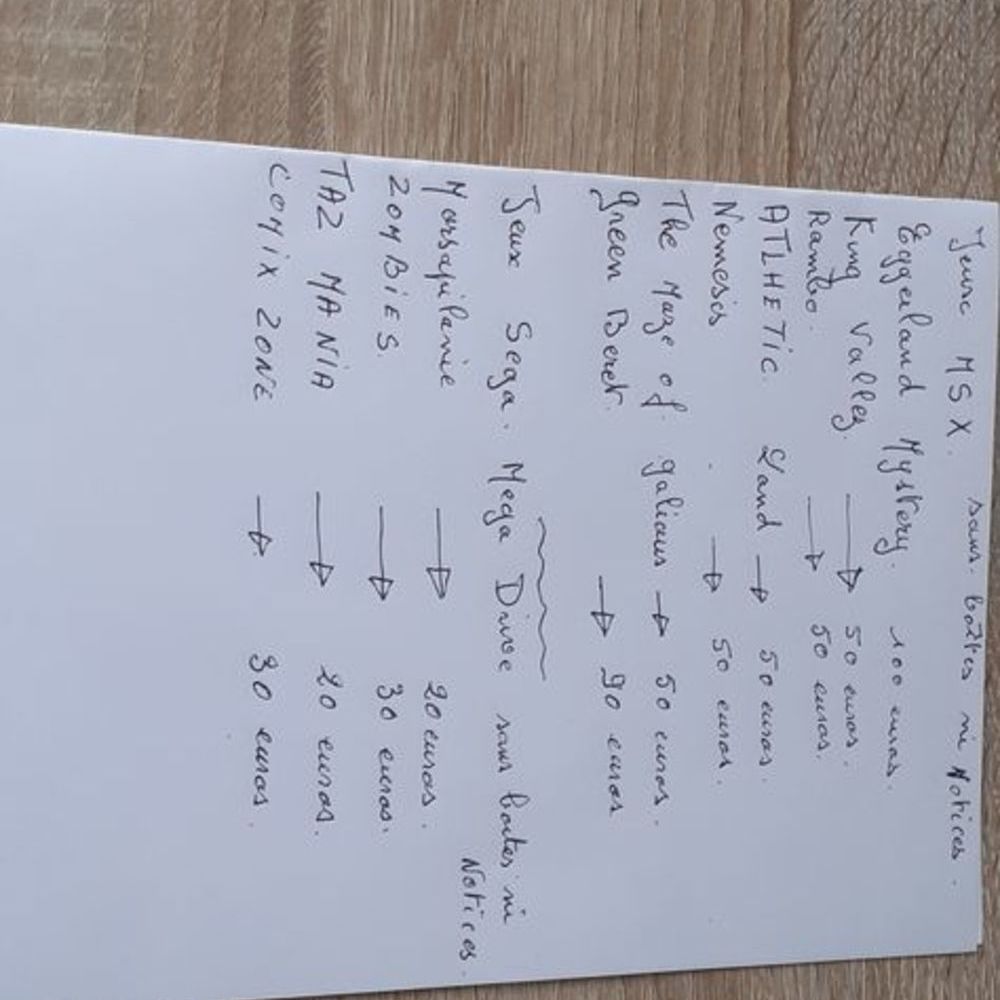 Jeux MSX. sans. boîtes ni Notices.
Eggerland Mystery. 100 euros.
King Valley. → 50 euros.
Rambo. → 50 euros.
ATLHETIC Land → 50 euros.
Nemesis. → 50 euros.
The Maze of galious → 50 euros.
Green Beret. → 90 euros
Jeux Sega. Mega Drive sans boites ni
Notices.
Marsupilamie → 20 euros.
ZOMBIES. → 30 euros.
TAZ MANIA → 20 euros.
COMIX ZONE → 30 euros.